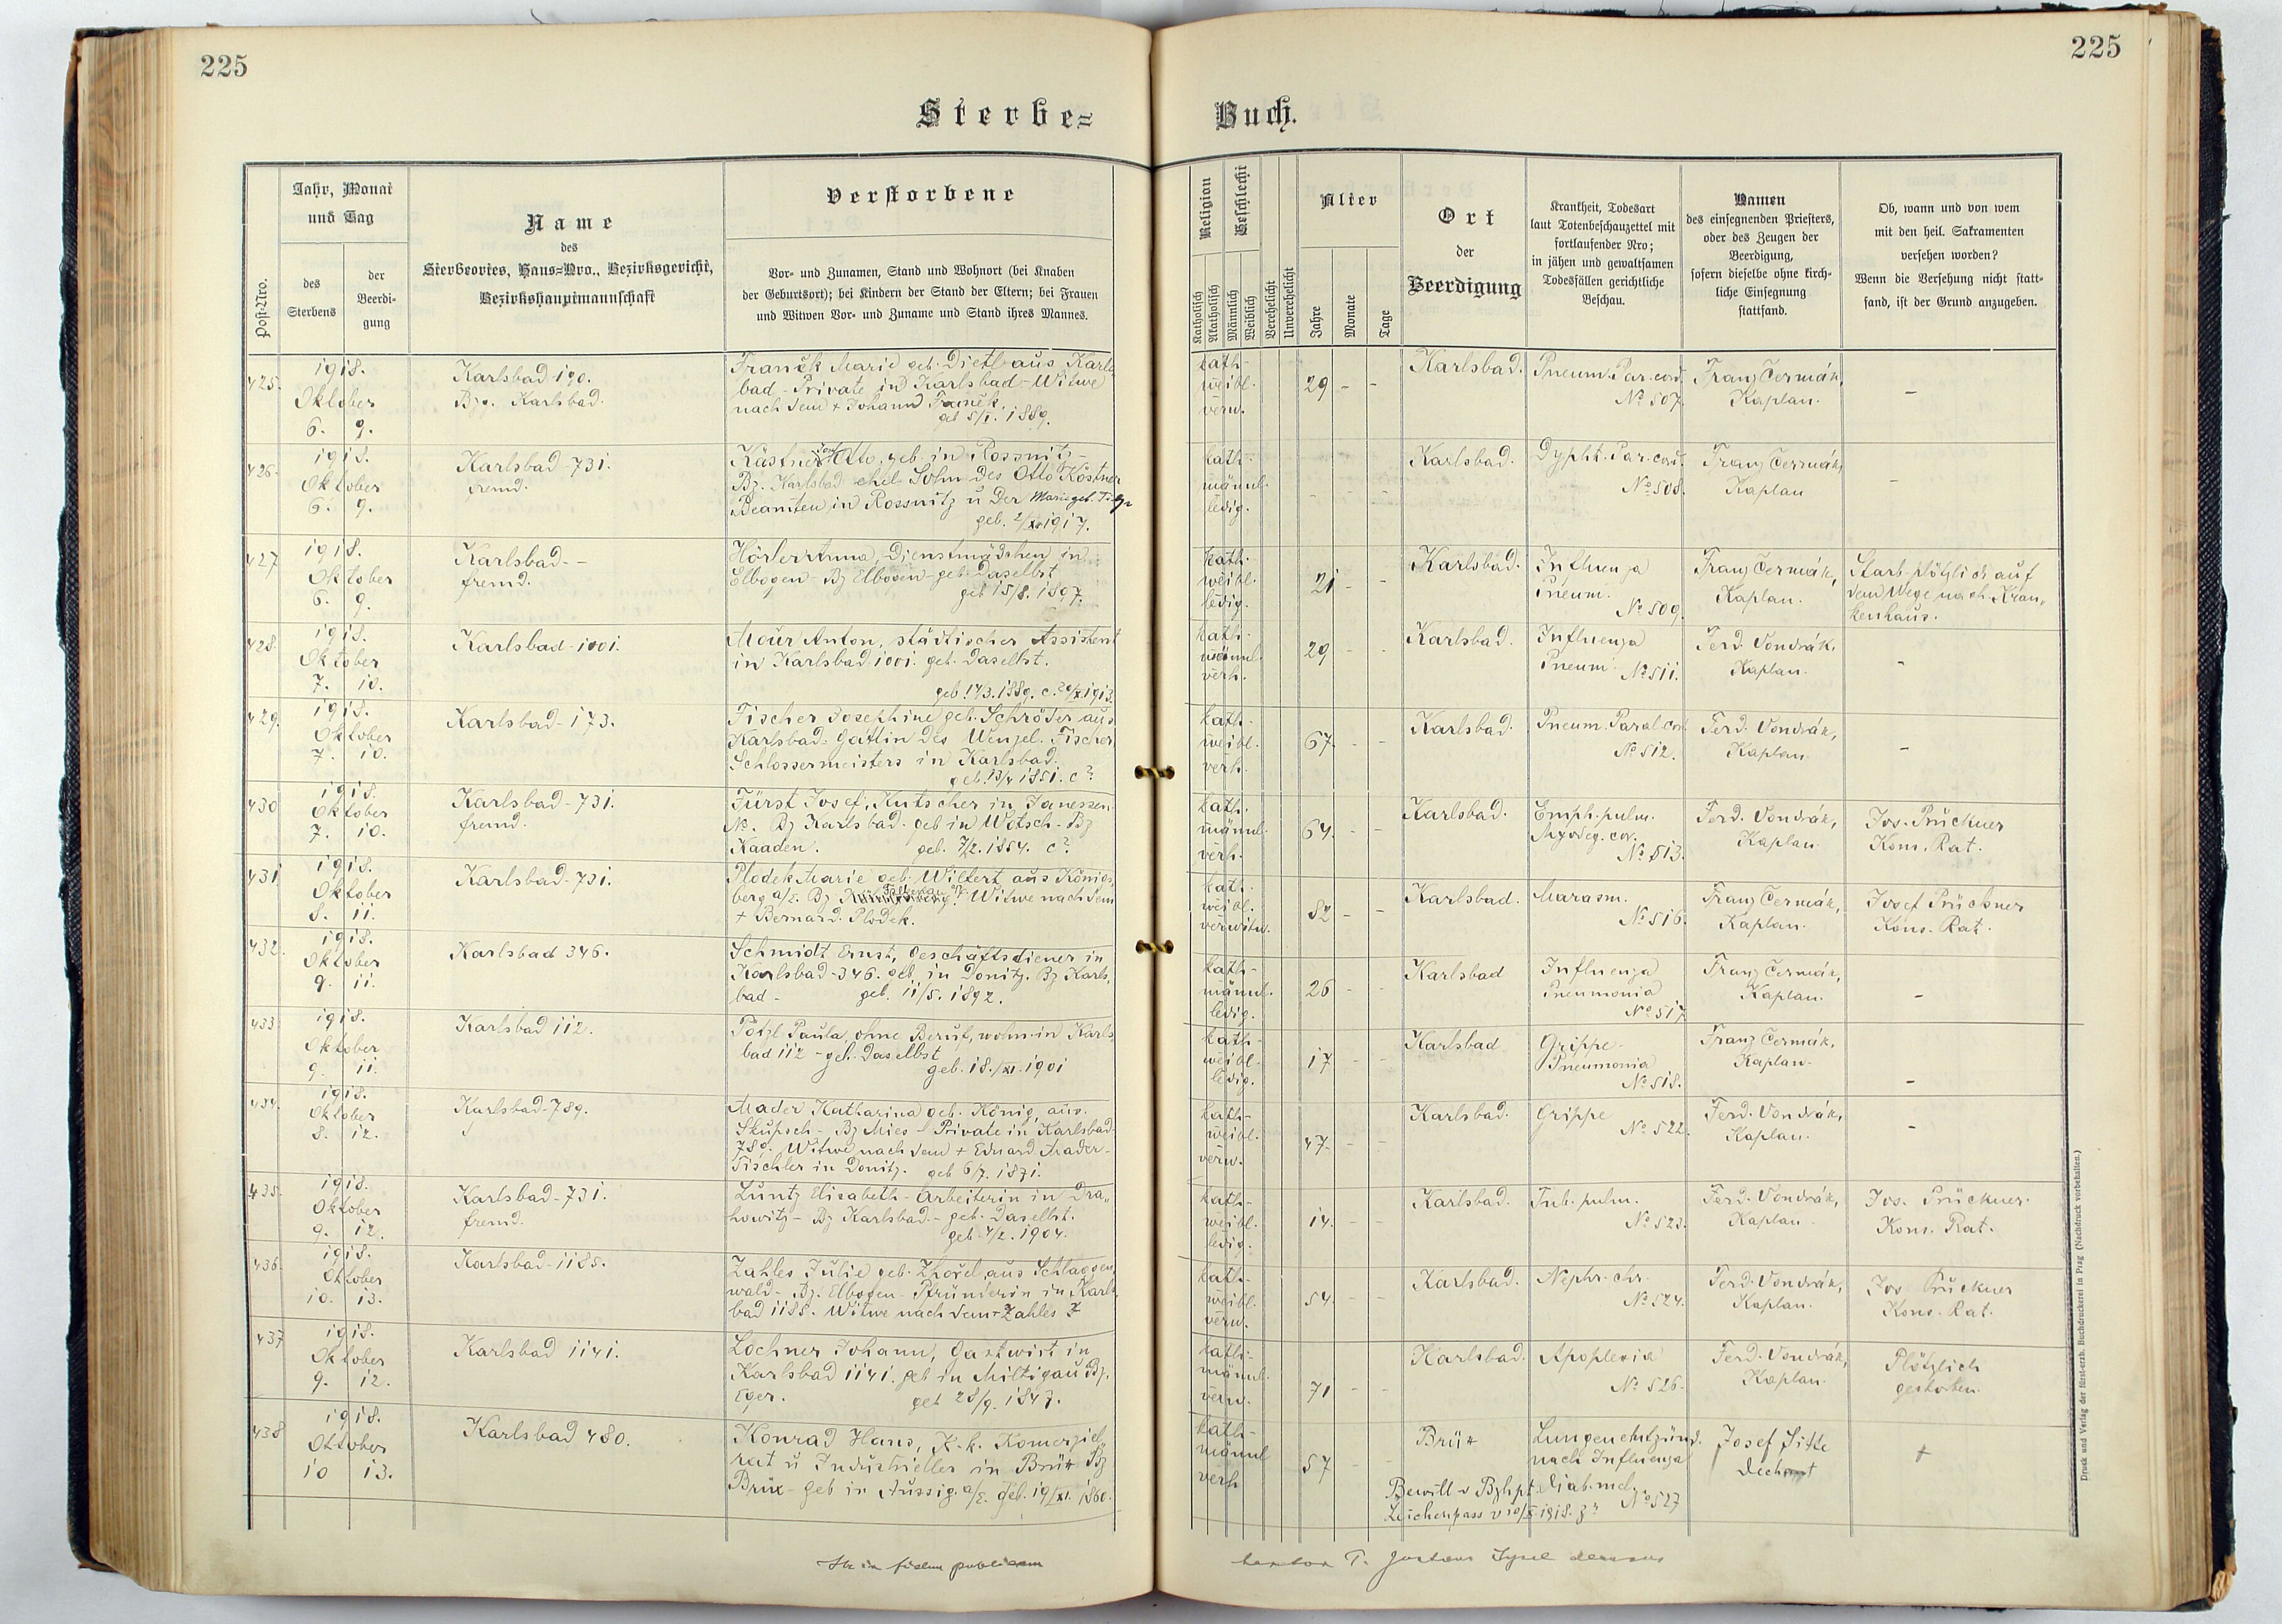 225
225
Sterbe=
Buch.
Post-Nro.
Jahr, Monat
und Tag
des
Sterbens
der
Beerdi-
gung
Name
des
Sterbeortes, Haus=Nro., Bezirksgericht,
Bezirkshauptmannschaft
Verstorbene
Vor- und Zunamen, Stand und Wohnort (bei Knaben
der Geburtsort); bei Kindern der Stand der Eltern; bei Frauen
und Witwen Vor- und Zuname und Stand ihres Mannes.
Religion
Katholisch
Akatholisch
Geschlecht
Männlich
Weiblich
Verehelicht
Unverehelicht
Alter
Jahre
Monate
Tage
Ort
der
Beerdigung
Krankheit, Todesart
laut Totenbeschauzettel mit
fortlaufender Nro;
in jähen und gewaltsamen
Todesfällen gerichtliche
Beschau.
Namen
des einsegnenden Priesters,
oder des Zeugen der
Beerdigung,
sofern dieselbe ohne kirch-
liche Einsegnung
stattfand.
Ob, wann und von wem
mit den heil. Sakramenten
versehen worden?
Wenn die Versehung nicht statt-
fand, ist der Grund anzugeben.
425.
1918.
Oktober
6. 9.
Karlsbad 190.
Bzg. Karlsbad.
Franěk Marie geb. Dietl aus Karls
bad - Private in Karlsbad - Witwe
nach dem + Johann Franěk.
geb 5/I. 1889.
kath-
weibl.
verw.
29 - -
Karlsbad.
Pneum. Par. cord.
No 507.
Franz Čermák,
Kaplan.
-
426.
1918.
Oktober
6. 9.
Karlsbad - 731.
fremd.
Kästner Otto, geb. in Rossnitz -
Bz. Karlsbad ehel. Sohn des Otto Köstner
Beamten in Rossnitz u der Marie geb.
geb. 2/ 1917.
kath-
männl.
ledig.
- - -
Karlsbad.
Dypht. Par. cord.
No 508.
Franz Čermák,
Kaplan
-
427
1918.
Oktober
6. 9.
Karlsbad - -
fremd.
Hörler Anna, Dienstmädchen in
Elbogen - Bz Elbogen - geb. Daselbst
geb 15/8. 1897.
kath-
weibl.
ledig.
21 - -
Karlsbad.
Influenza
Pneum.
No 509.
Franz Čermák,
Kaplan.
Starb plötzlich auf
dem Wege nach Kran„
kenhaus.
428.
1918.
Oktober
7. 10.
Karlsbad - 1001.
Mour Anton, städtischer Assistent
in Karlsbad 1001. geb. Daselbst.
geb. 17/3. 1889. c. 1913.
kath-
männl.
verh.
29 - -
Karlsbad.
Influenza
Pneum. No 511.
Ferd. Vondrák,
Kaplan.
-
429.
1918.
Oktober
7. 10.
Karlsbad - 173.
Fischer Josephine geb. Schröder aus
Karlsbad - Gattin des Wenzel Fischer
Schlossermeisters in Karlsbad.
geb. 13/4 1851. c?
kath-
weibl.
verh.
67. - -
Karlsbad.
Pneum. Paral. cord.
No 512.
Ferd. Vondrák,
Kaplan.
-
430
1918.
Oktober
7. 10.
Karlsbad - 731.
fremd.
Fürst Josef, Kutscher in Janessen
No. Bz Karlsbad. geb in Wotsch - Bz
Kaaden. geb. 7/2. 1854. c?
kath.
männl.
verh.
64. - -
Karlsbad.
Emph. pulm.
Myodeg. cor.
No 513.
Ferd. Vondrák,
Kaplan
Jos. Prückner
Kons. Rat.
431
1918.
Oktober
8. 11.
Karlsbad - 731.
Plodek Marie geb. Wilfert aus Königs„
berg a/E. Bz Falkenau a/E. Witwe nach dem
+ Bernard Plodek.
kath.
weibl.
verwitw.
82 - -
Karlsbad.
Marasm.
No 516.
Franz Čermák,
Kaplan.
Josef Prückner
Kons. Rat.
432.
1918.
Oktober
9. 11.
Karlsbad 346.
Schmidt Ernst, Geschäftsdiener in
Karlsbad - 346. geb. in Donitz. Bz Karls„
bad - geb. 11/5. 1892.
kath-
männl.
ledig.
26 - -
Karlsbad
Influenza
Pneumonia
No 517
Franz Čermák,
Kaplan.
-
433
1918.
Oktober
9. 11.
Karlsbad 112.
Pötzl Paula, ohne Beruf, wohn. in Karls
bad 112 - geb. Daselbst
geb. 18./XI. 1901
kath-
weibl.
ledig.
17 - -
Karlsbad
Grippe -
Pneumonia
No 518.
Franz Čermák,
Kaplan.
-
434.
1918.
Oktober
8. 12.
Karlsbad - 789.
Mader Katharina geb. König, aus
Skupsch - Bz Mies - Private in Karlsbad -
789. Witwe nach dem + Eduard Mader -
Tischler in Donitz. geb 6/7. 1871.
kath-
weibl.
verw.
47. - -
Karlsbad.
Grippe
No 522.
Ferd. Vondrák,
Kaplan.
-
435.
1918.
Oktober
9. 12.
Karlsbad - 731.
fremd.
Luntz Elisabeth - Arbeiterin in Dra„
howitz - Bz Karlsbad. - geb. Daselbst.
geb. 4/2. 1904.
kath-
weibl.
ledig.
14. - -
Karlsbad.
Tub. pulm.
No 523.
Ferd. Vondrák,
Kaplan
Jos. Prückner
Kons. Rat.
436.
1918.
Oktober
10. 13.
Karlsbad - 1185.
Zahles Julie geb. Zhořel aus Schlaggen
wald - Bz. Elbogen - Pfründerin in Karls„
bad 1185. Witwe nach dem + Zahles
kath-
weibl.
verw.
54. - -
Karlsbad.
Nephr. chr.
No 524.
Ferd. Vondrák,
Kaplan.
Jos Prückner
Kons. Rat.
437
1918.
Oktober
9. 12.
Karlsbad 1141.
Lochner Johann, Gastwirt in
Karlsbad 1141. geb in Miltigau Bz.
Eger. geb 28/9. 1847.
kath-
männl.
verw.
71 - -
Karlsbad.
Apoplexia
No 526.
Ferd. Vondrák,
Kaplan.
Plötzlich
gestorben.
438
1918.
Oktober
10 13.
Karlsbad 480.
Konrad Hans, K. k. Komerziel„
rat u Industrieller in Brüx Bz
Brüx - geb in Aussig a/E. geb. 19/XI. 1860.
kath-
männl
verh
57 - -
Brüx
Lungenentzünd.
nach Influenza
Diab. mel.
No 527
Bewill v Bzhpt
Leichenpass v 10/X. 1918.
Josef Sitte
Dechant
+
in fidem publicam
Druck und Verlag der fürst-erzb. Buchdruckerei in Prag (Nachdruck vorbehalten.)